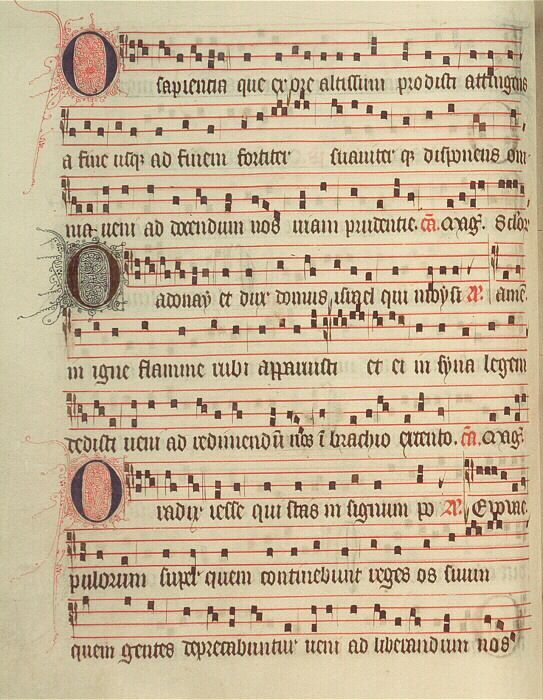 O sapientia que ex ore altissimi prodisti attingens
a fine usq; ad finem fortiter suauiter q; disponens om
nia ueni ad docendum nos uiam prudentie. cā. Mag̃.
O adonay et dux domus israel qui moysi amē.
in igne flamme rubi apparuisti et ei in syna legem
dedisti ueni ad redimendū nos ī brachio extento. cā. Mag̃.
O radix iesse qui stas in signum po
pulorum super quem continebunt reges os suum
quem gentes deprecabuntur ueni ad liberandum nos